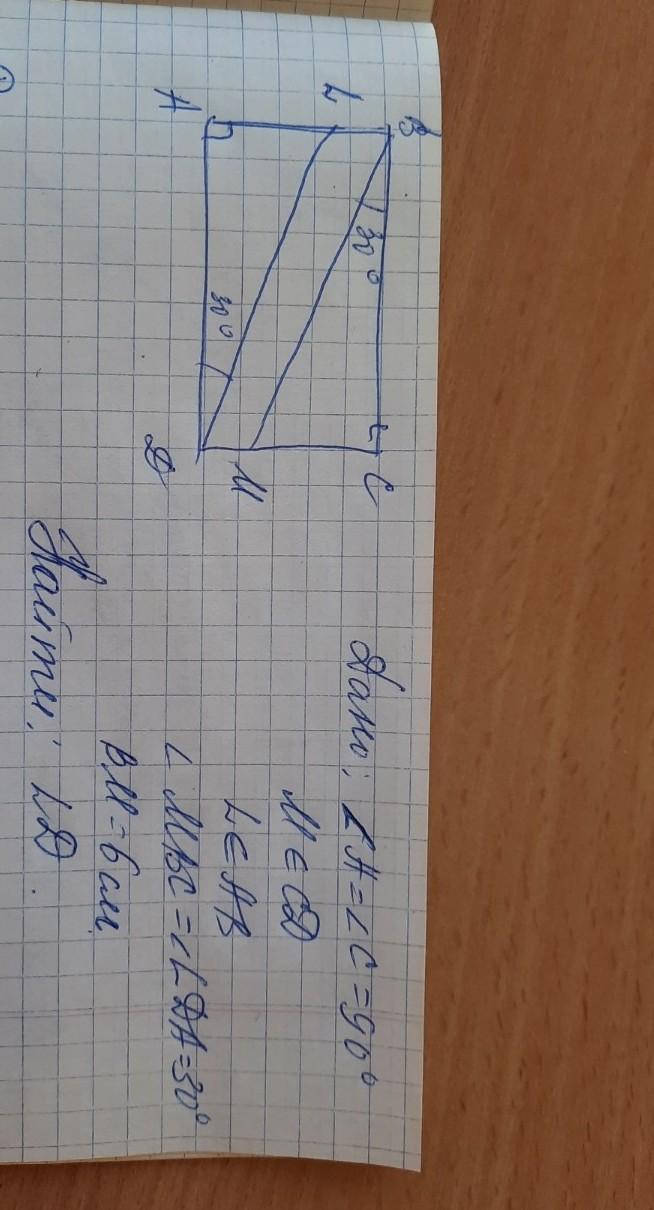 B
C
L
30°
30°
M
A
D
Дано: ∠A=∠C=90°
M∈CD
L∈AB
∠MBC=∠LDA=30°
BM=6 см
Найти: LD.